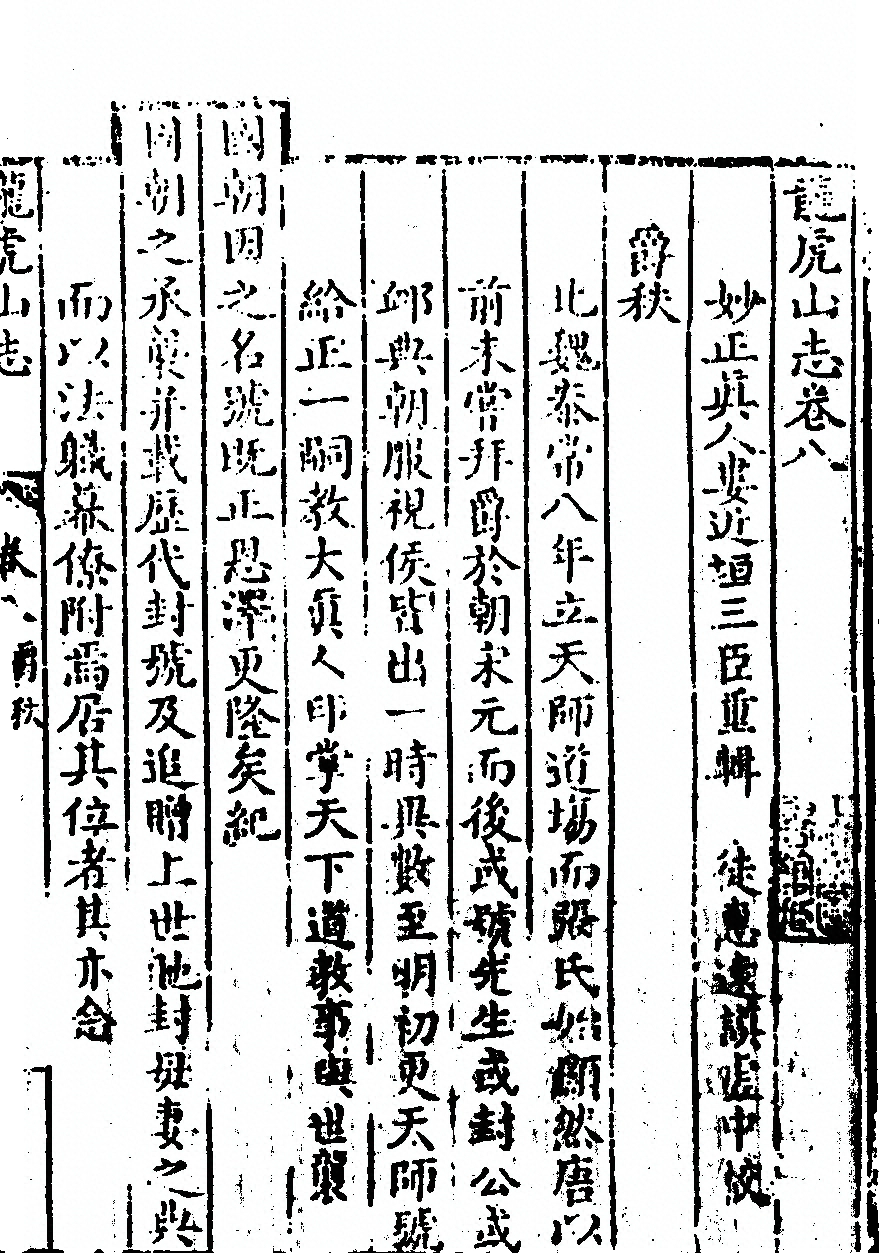 龍虎山志卷八
妙正眞人婁近垣三臣重輯　徒惠遠謨虛中校
爵秩
北魏泰常八年立天師道場而張氏始顯然唐以
前未嘗拜爵於朝宋元而後或號先生或封公或
卿典朝服視侯皆出一時異數至明初更天師號
給正一嗣教大眞人印掌天下道教事與世襲
國朝因之名號既正恩澤更隆矣紀
國朝之承襲并載歷代封號及追贈上世貤封母妻之典
而以法職幕僚附焉居其位者其亦念
龍虎山志
卷八 爵秩